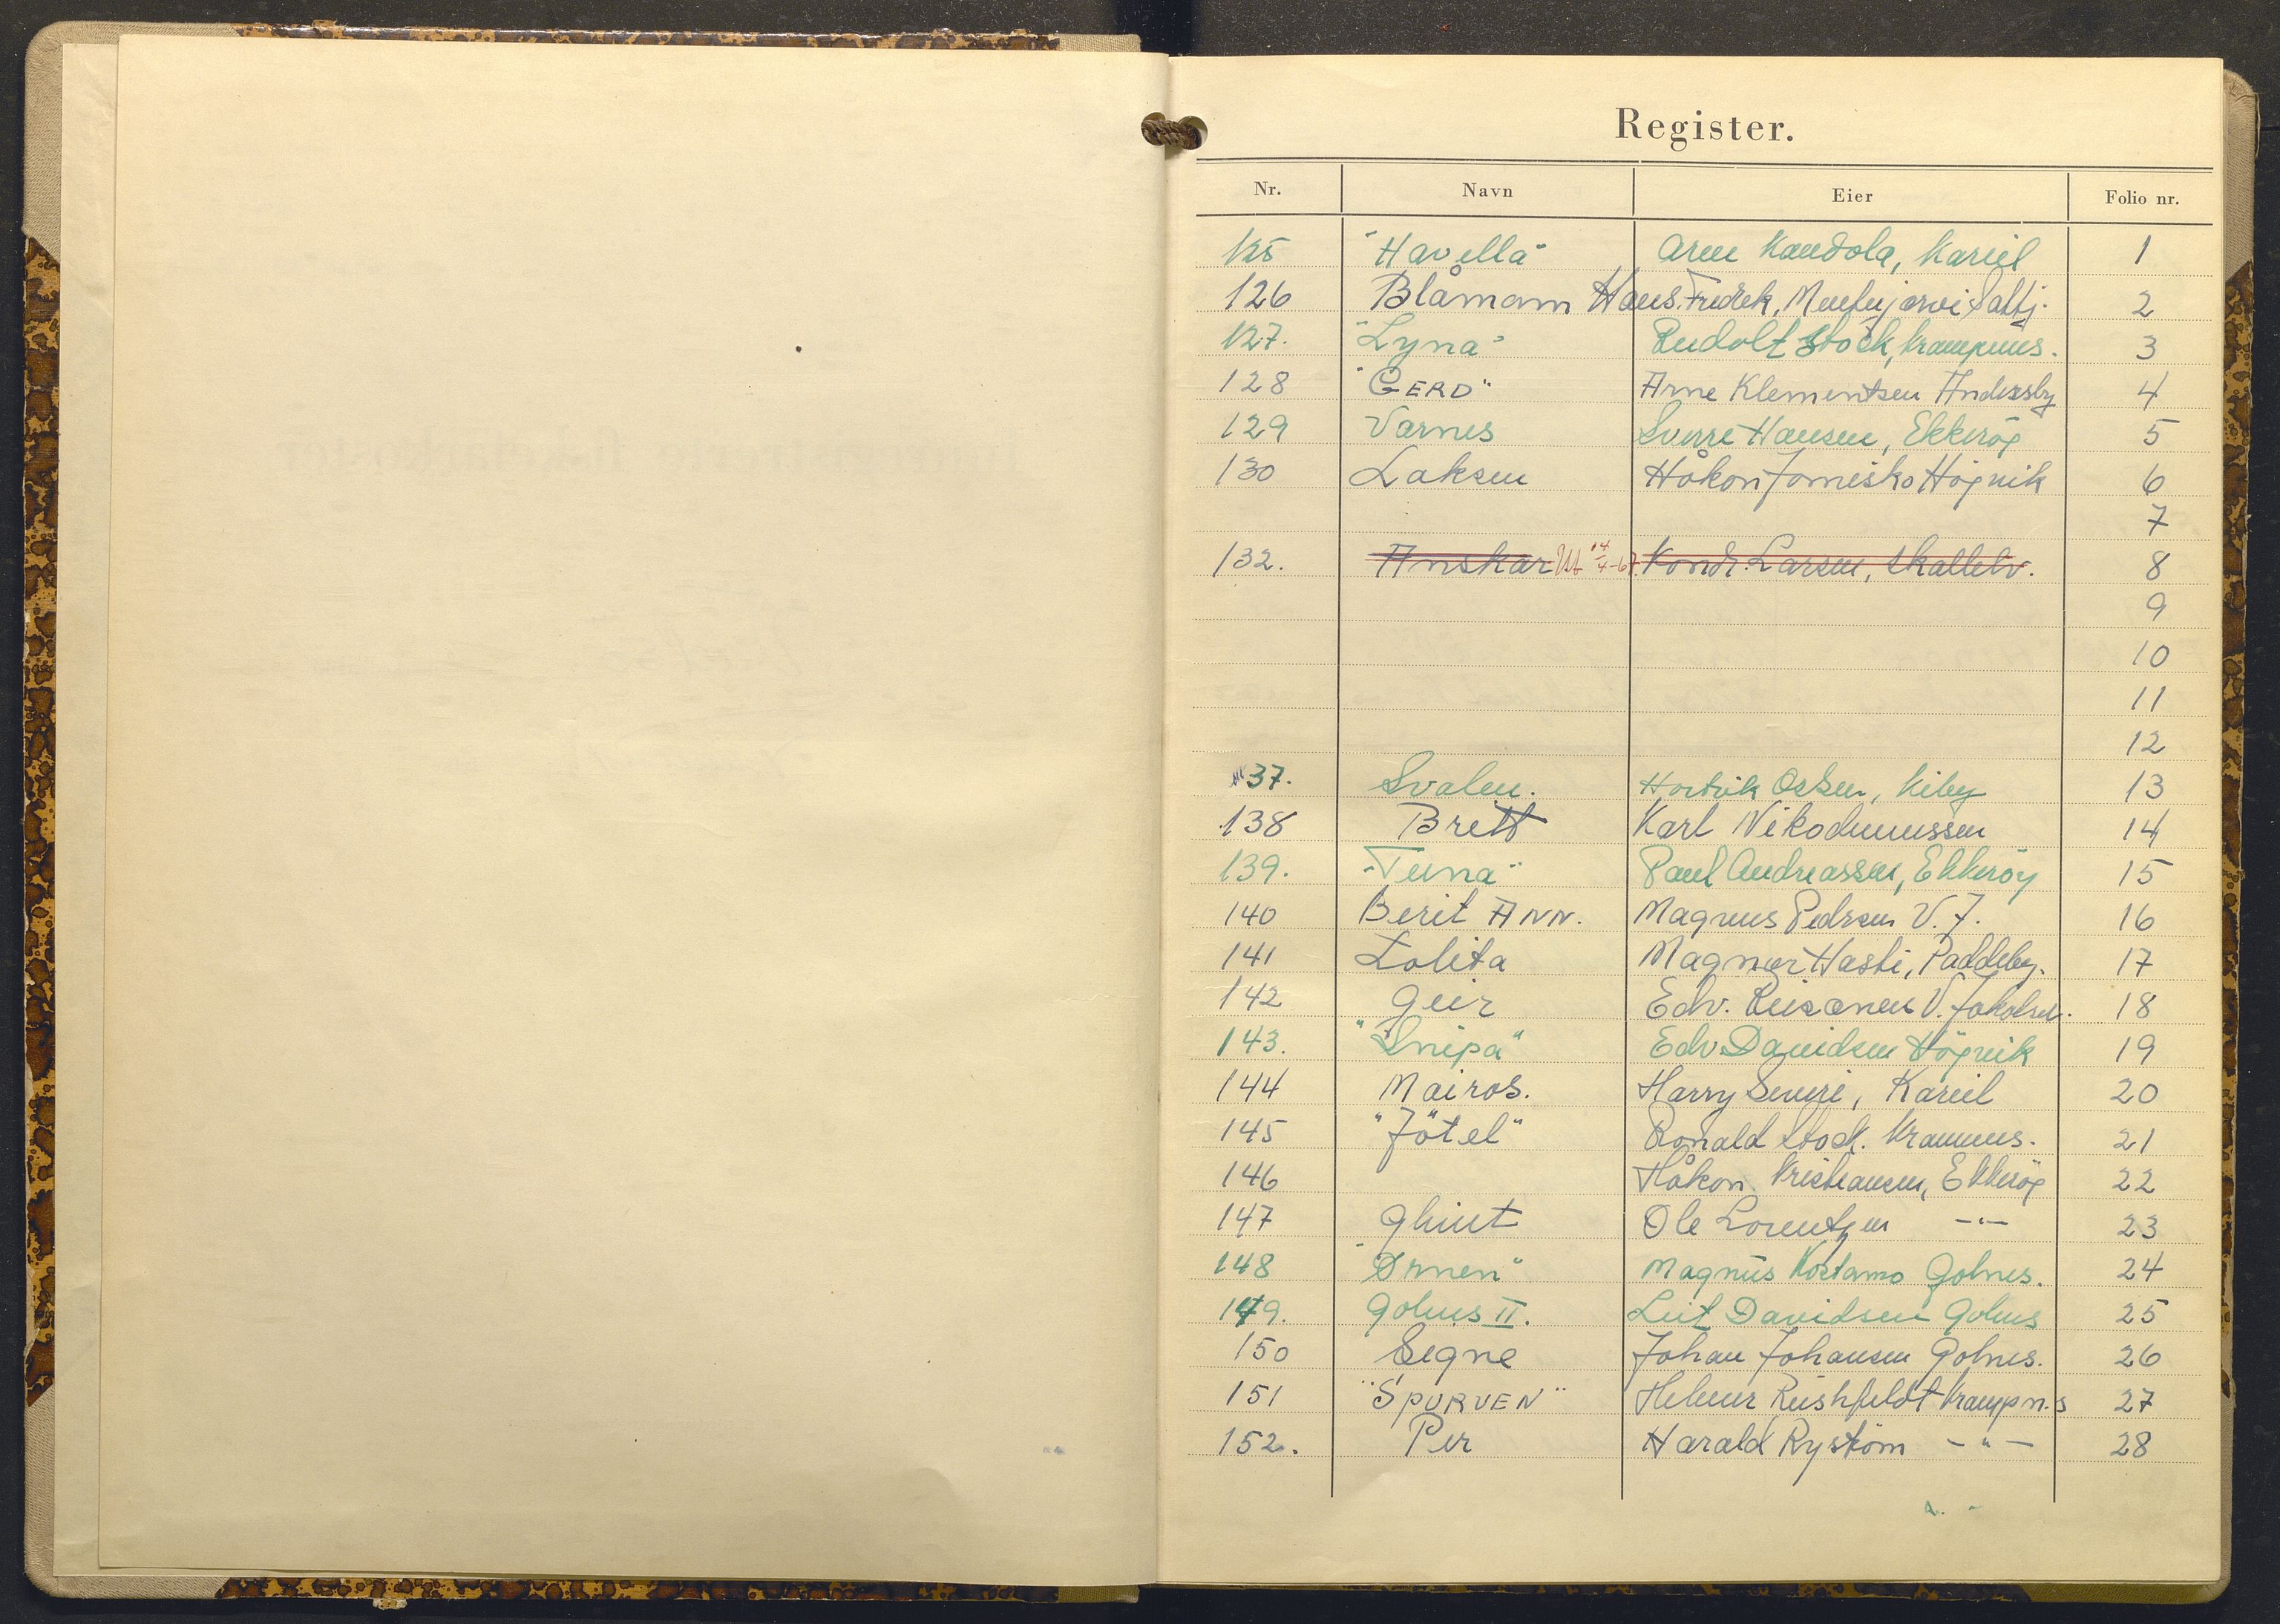 Register.
Nr. Navn Eier Folio nr.
125 "Havella" Arne Kandola, Kariel 1
126 Blåmann Hans. Fredrek, 2
127. "Lyna" Rudolf Stock, Krampenes. 3
128 "GERD" Arne Klementsen Andersby 4
129 Varnes Sverre Hansen, Ekkerøy 5
130 Laksen Håkon Jomisko Högnik 6
7
132. Anskar Ut 14/4-67. Kondr. Larsen, Skallelv. 8
9
10
11
12
137. Svalen. Hartvik Olsen, Kiby 13
138 Britt Karl Nikodemussen 14
139. "Terna" Paul Andreassen, Ekkeröy 15
140 Berit ANN. Magnus Pedrsen V.J. 16
141 Lolita Magnor Hasti, Paddeby. 17
142 Geir Edv. Reisænen V. Jakobselv. 18
143. "Snipa" Edv Davidsen Högnik 19
144 Mairos. Harry Severi, Kariel 20
145 "Jötel" Ronald Stock. 21
146 Håkon. Kristiansen, Ekkeröy 22
147 Glimt Ole Lorentzen -"- 23
148 "Ørnen" Magnus Kostamo Golnes. 24
149. Golnes II. Leif Davidsen Golnes 25
150 Signe Johan Johansen Golnes. 26
151 "SPURVEN" Helmer Rushfeldt Krampn.s 27
152. Per Harald Ryström -"- 28